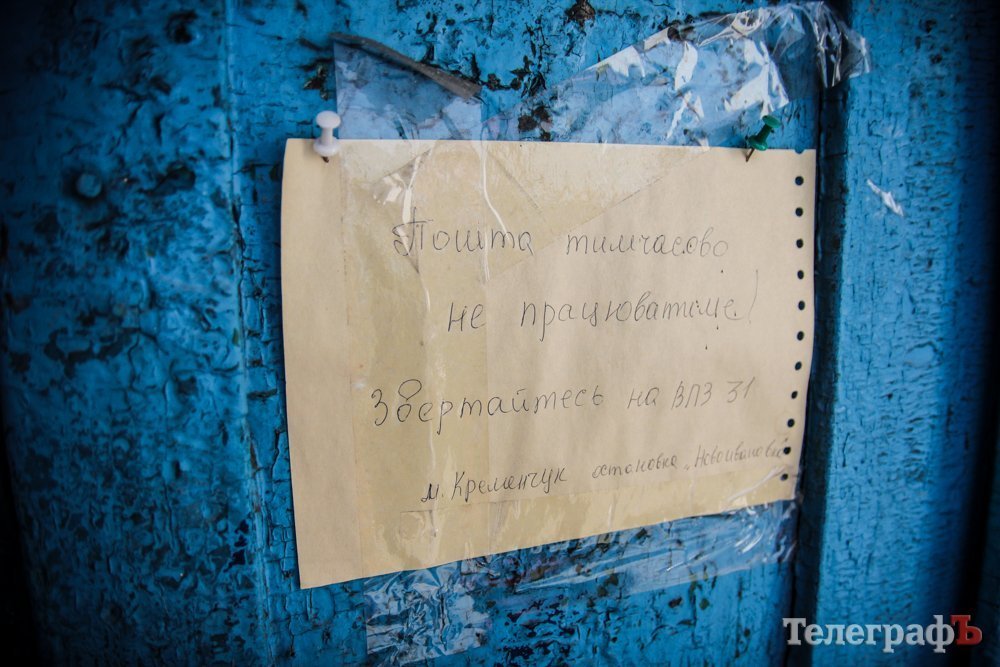 Пошта тимчасово
не працюватиме!
Звертайтесь на ВПЗ 31
м. Кременчук остановка „Новоивановка
ТелеграфЪ